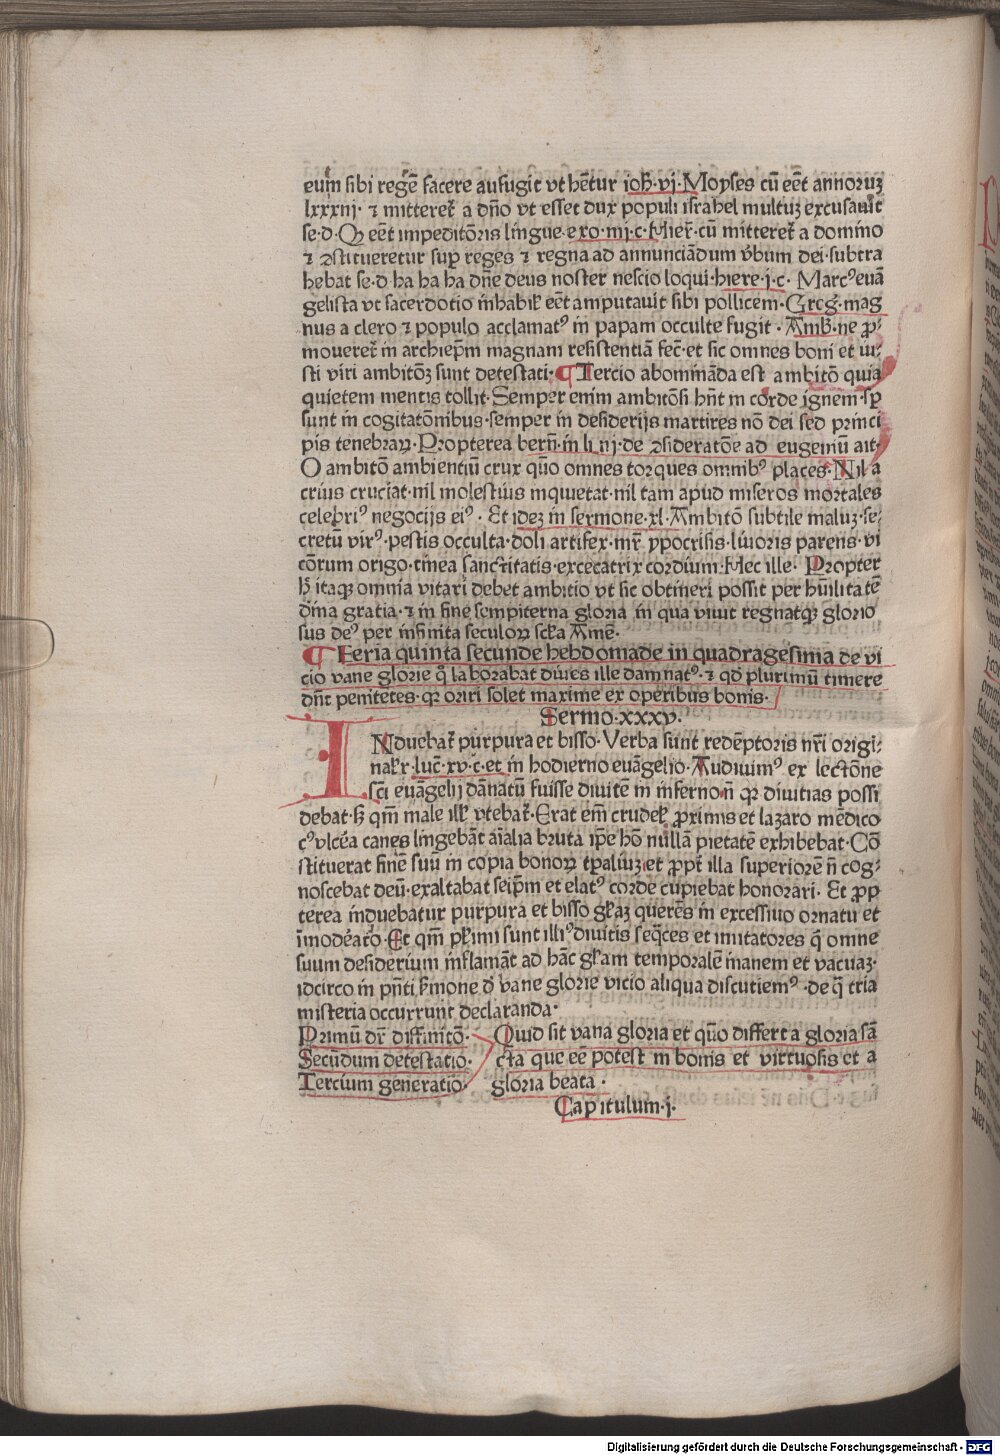 eum sibi regē facere aufugit vt hēt̄ur ioh̄·vj·Moyses cū eēt annoruꝫ
lxxxnj· ⁊ mitteret̄ a dn̄o vt esset dux populi israhel multuꝫ excusauit
se·d·Qꝫ eēt impeditōris lingue·exo·iiij·c·Hier̄·cū mitteret̄ a domino
⁊ ꝯstitueretur suꝑ reges ⁊ regna ad annunciādum v̄bum dei·subtra
hebat se·d·ha ha ha dn̄e deus noster nescio loqui·hiere·j·c· Marcꝰ euā
gelista vt sacerdotio inhabil̄ eēt amputauit sibi pollicem·Greg·mag
nus a clero ⁊ populo acclamatꝰ in papam occulte fugit·Amb̄·ne ꝓ⸗
moueret̄ in archiep̄m magnam resistentiā fec̄·et sic omnes boni et iu⸗
sti viri ambitōꝫ sunt detestati·¶Tercio abomināda est ambitō quia
quietem mentis tollit·Semper enim ambitōsi hn̄t in corde ignem·sꝑ
sunt in cogitatōnibus·semper in desiderijs martires nō dei sed princi
pis tenebraꝝ·Propterea bern̄·in li·iij·de ꝯsideratōe ad eugeniū ait·
O ambitō ambientiū crux quō omnes torques omnibꝰ places·Nil a
crius cruciat·nil molestius inquietat·nil tam apud miseros mortales
celebriꝰ negocijs eiꝰ· Et ideꝫ in sermone·xl·Ambitō subtile maluꝫ·se⸗
cretū virꝰ·pestis occulta·doli artifex·mr̄ ypocrisis·liuoris parens·vi
ciōrum origo·tinea sanctitatis·excecatrix cordium·Hec ille· Propter
h̄ itaqꝫ omnia vitari debet ambitio vt sic obtineri possit per hūilitatē
diīna gratia·⁊ in fine sempiterna gloria in qua viuit regnatqꝫ glorio
sus deꝰ per infinita seculoꝝ scl̄a Amē·
¶ Feria quinta secunde hebdomade in quadragesima de vi
cio vane glorie q̄ laborabat diues ille damnatꝰ·⁊ qd̄ plurimū timere
dn̄t penitētes·qꝛ oriri solet maxime ex operibus bonis·
Sermo·xxxv·
INduebat̄ purpura et bisso·Verba sunt redēptoris nr̄i origi⸗
nalr̄·luc̄·xv·c̄·et in hodierno euāgelio·Audiuimꝰ ex lectōne
sc̄i euāgelij dānatū fuisse diuitē in inferno·n̄ qꝛ diuitias possi
debat·h̄ qm̄ male ill̄ vtebat̄·Erat em̄ crudel̄ ꝓximis et lazaro mēdico
cꝰ vlcēa canes lingebāt aīalia bruta ip̄e hō nullā pietatē exhibebat·Cō
stituerat finē suū in copia bonoꝝ tp̄aliuꝫ et ꝓpt̄ illa superiorē n̄ cog⸗
noscebat deū·exaltabat seip̄m et elatꝰ corde cupiebat honorari· Et ꝓp
terea induebatur purpura et bisso gl̄iaꝫ querēs in excessiuo ornatu et
īmodēato·Et qm̄ pl̄imi sunt illiꝰ diuitis seq̄ces et imitatores q̄ omne
suum desiderium inflamāt ad hāc gl̄iam temporalē inanem et vacuaꝫ·
idcirco in pn̄ti s̄mone d̄ vane glorie vicio aliqua discutiemꝰ·de q̄ tria
misteria occurrunt declaranda·
Primū dr̄ diffinitō·
Secūdum detestatio·
Tercium generatio·
Quid sit vana gloria et quō differt a gloria sā
cta que eē potest in bonis et virtuosis et a
gloria beata·
Capitulum·j·
Digitalisierung gefördert durch die Deutsche Forschungsgemeinschaft - DFG